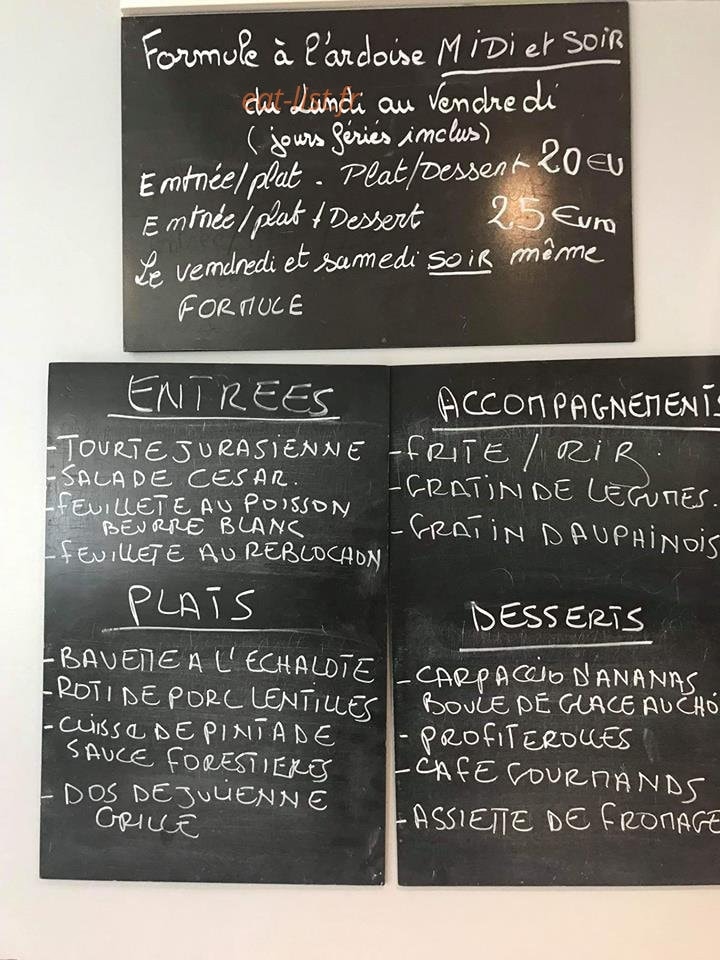 Formule à l'ardoise MIDI et SOIR
du Lundi au Vendredi
eat-list.fr
(jours fériés inclus)
Entrée/plat . Plat/Dessert 20 EU
Entrée/plat/Dessert 25 Euro
Le vendredi et samedi SOIR même
FORMULE
ENTREES
-TOURTE JURASIENNE
-SALADE CESAR.
-FEUILLETE AU POISSON
BEURRE BLANC
-FEUILLETE AU REBLOCHON
PLATS
-BAVETTE A L'ECHALOTE
-ROTI DE PORC LENTILLES
-CUISSE DE PINTADE
SAUCE FORESTIERES
- DOS DE JULIENNE
GRILLE
ACCOMPAGNEMENTS
-FRITE / RIR.
-GRATIN DE LEGUMES.
-GRATIN DAUPHINOIS
DESSERTS
-CARPACCIO D'ANANAS
BOULE DE GLACE AU CHO
- PROFITEROLLES
-CAFE GOURMANDS
-ASSIETTE DE FROMAGE